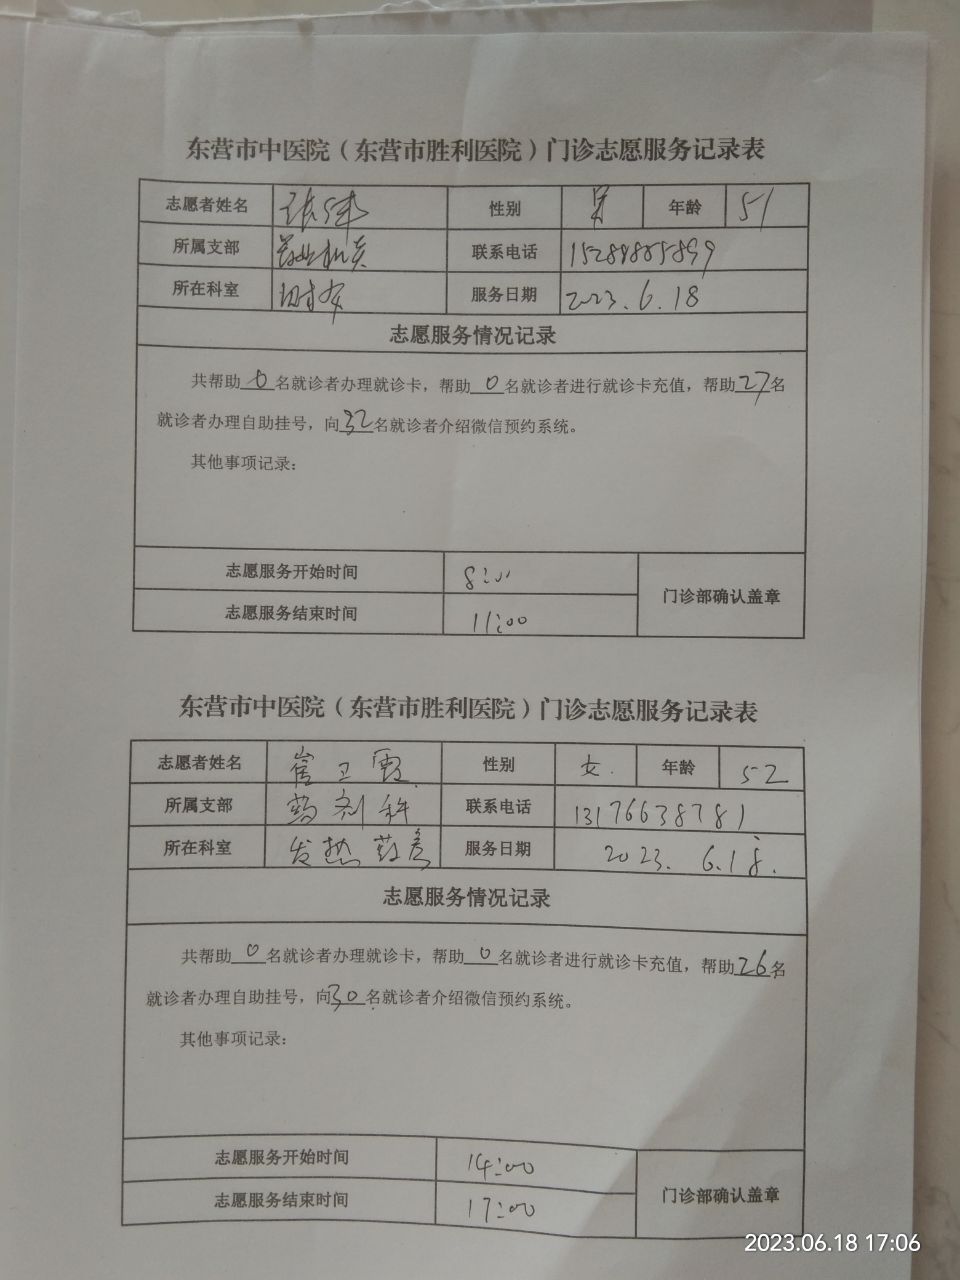 东营市中医院（东营市胜利医院）门诊志愿服务记录表
志愿者姓名 张 性别 男 年龄 51
所属支部 联系电话 15288885899
所在科室 财务 服务日期 2023.6.18
志愿服务情况记录
共帮助0名就诊者办理就诊卡，帮助0名就诊者进行就诊卡充值，帮助27名
就诊者办理自助挂号，向32名就诊者介绍微信预约系统。
其他事项记录：
志愿服务开始时间 8:00
门诊部确认盖章
志愿服务结束时间 11:00
东营市中医院（东营市胜利医院）门诊志愿服务记录表
志愿者姓名 崔卫霞 性别 女. 年龄 52
所属支部 药剂科 联系电话 13176638781
所在科室 发热药房 服务日期 2023. 6.18.
志愿服务情况记录
共帮助0名就诊者办理就诊卡，帮助0名就诊者进行就诊卡充值，帮助26名
就诊者办理自助挂号，向30名就诊者介绍微信预约系统。
其他事项记录：
志愿服务开始时间 14:00
门诊部确认盖章
志愿服务结束时间 17:00
2023.06.18 17:06